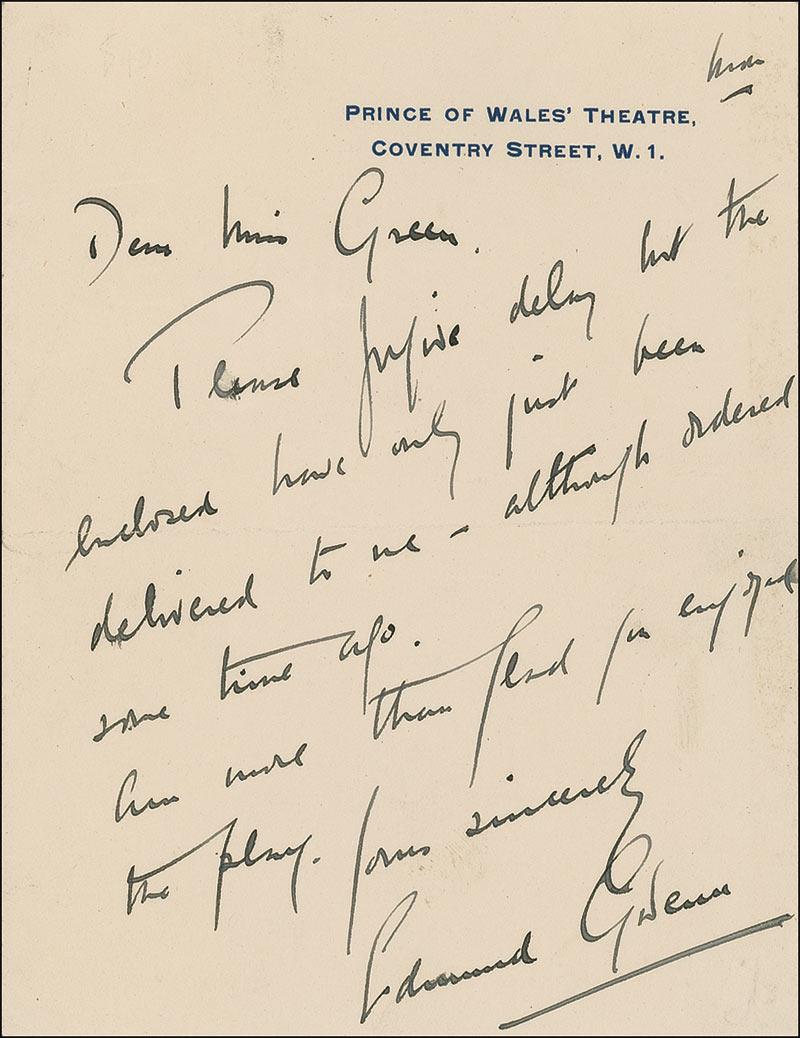 Mon
PRINCE OF WALES' THEATRE,
COVENTRY STREET, W. 1.
Dear Miss Green.
Please forgive delay but the
enclosed have only just been
delivered to me - although ordered
some time ago.
Am more than glad you enjoyed
the play. Yours sincerely
Edmund Gwenn